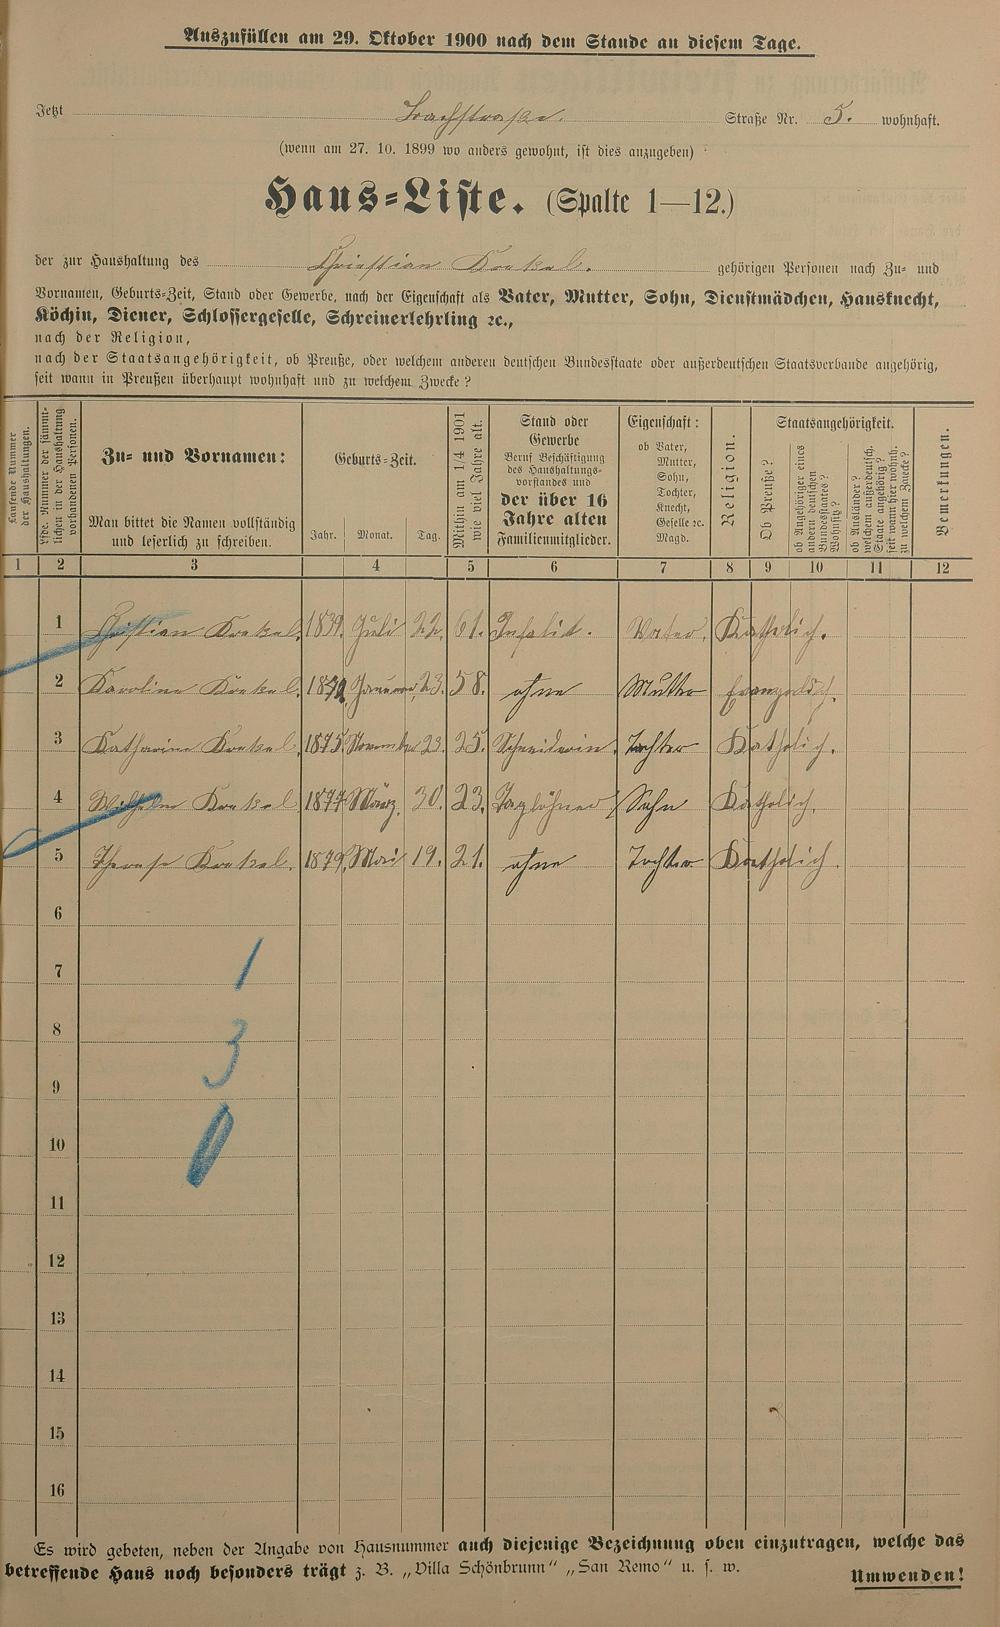 Auszufüllen am 29. Oktober 1900 nach dem Stande an diesem Tage.
Jetzt Bachstraße. Straße Nr. 5. wohnhaft.
(wenn am 27. 10. 1899 wo anders gewohnt, ist dies anzugeben)
Haus=Liste. (Spalte 1—12.)
der zur Haushaltung des Christian Krekel. gehörigen Personen nach Zu= und
Vornamen, Geburts=Zeit, Stand oder Gewerbe, nach der Eigenschaft als Vater, Mutter, Sohn, Dienstmädchen, Hausknecht,
Köchin, Diener, Schlossergeselle, Schreinerlehrling ꝛc.,
nach der Religion,
nach der Staatsangehörigkeit, ob Preuße, oder welchem anderen deutschen Bundesstaate oder außerdeutschen Staatsverbande angehörig,
seit wann in Preußen überhaupt wohnhaft und zu welchem Zwecke?
Laufende Nummer
der Haushaltungen.
Lfde. Nummer der sämmt=
lichen in der Haushaltung
vorhandenen Personen.
Zu= und Vornamen:
Man bittet die Namen vollständig
und leserlich zu schreiben.
Geburts=Zeit.
Jahr. Monat. Tag.
Mithin am 1/4 1901
wie viel Jahre alt.
Stand oder
Gewerbe
Beruf Beschäftigung
des Haushaltungs=
vorstandes und
der über 16
Jahre alten
Familienmitglieder.
Eigenschaft:
ob Vater,
Mutter,
Sohn,
Tochter,
Knecht,
Geselle ꝛc.
Magd.
Religion.
Staatsangehörigkeit.
Ob Preuße?
ob Angehöriger eines
andern deutschen
Bundesstaates?
Wohnsitz?
ob Ausländer?
welchem außerdeutsch.
Staate angehörig?
seit wann hier wohnh.
zu welchem Zwecke?
Bemerkungen.
1 2 3 4 5 6 7 8 9 10 11 12
1 Christian Krekel. 1839. Juli 22. 61. Infalid. Vater. Katholich.
2 Karoline Krekel. 1842 Januar 23. 58. ohne Mutter Evangelisch.
3 Katharine Krekel. 1875. November 23. 25. Schneiderin. Tochter Katholich.
4 Wilhelm Krekel 1877. März. 30. 23. Taglöhner Sohn Katholich
5 Therese Krekel. 1879. Mai 19. 21. ohne Tochter Katholich.
6
7 1
8 3
9
10 0
11
12
13
14
15
16
Es wird gebeten, neben der Angabe von Hausnummer auch diejenige Bezeichnung oben einzutragen, welche das
betreffende Haus noch besonders trägt z. B. „Villa Schönbrunn“ „San Remo“ u. s. w.
Umwenden!